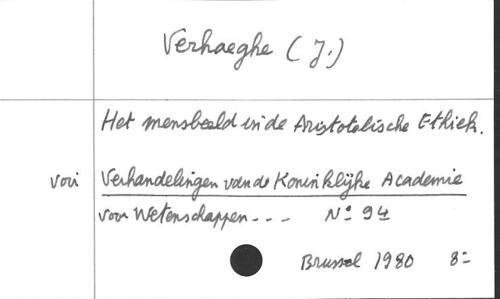 Verhaeghe (J.)
Het mensbeeld in de Aristotelische Ethiek.
voir Verhandelingen van de Koninklijke Academie
voor Wetenschappen - - - N° 94
Brussel 1980 8=